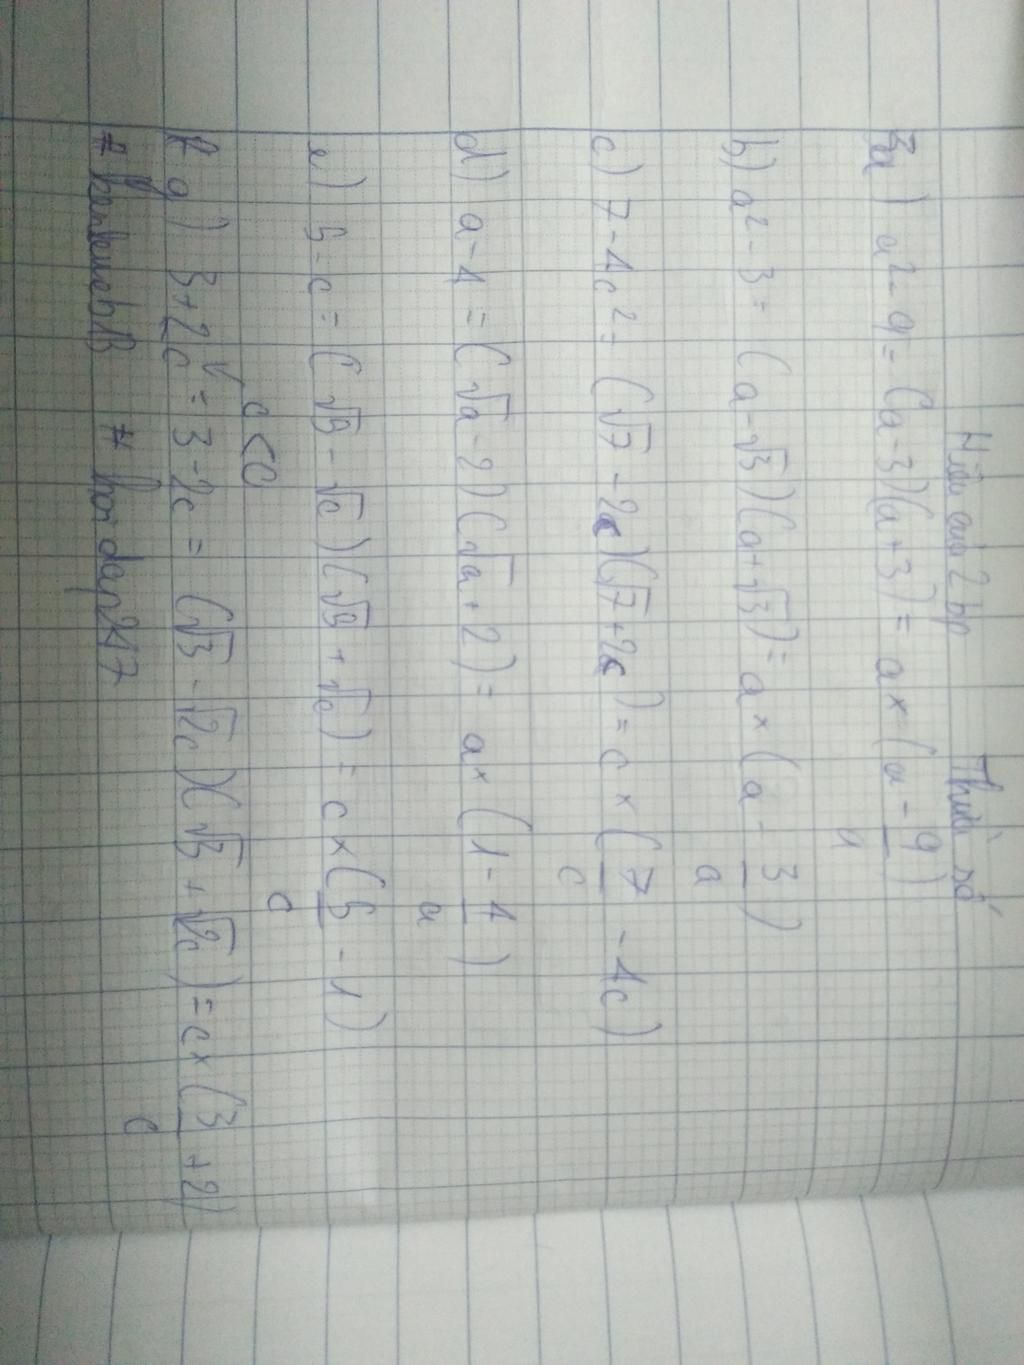 Hiệu của 2 bp Thừa số
3a) a² - 9 = (a-3)(a+3) = a × (a - 9/a)
b) a² - 3 = (a-√3)(a+√3) = a × (a - 3/a)
c) 7-4c² = (√7 - 2c)(√7+2c) = c × (7/c - 4c)
d) a-4 = (√a-2)(√a+2) = a × (1 - 4/a)
e) 5-c = (√5 - √c)(√5 + √c) = c × (5/c - 1)
c<0
f g) 3+2c = 3-2c = (√3 - √2c)(√3 + √2c) = c × (3/c + 2)
# # hoidap247